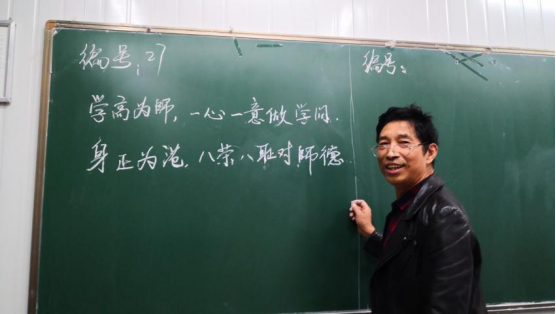 编号:27
编号:
学高为师,一心一意做学问.
身正为范,八荣八耻对师德